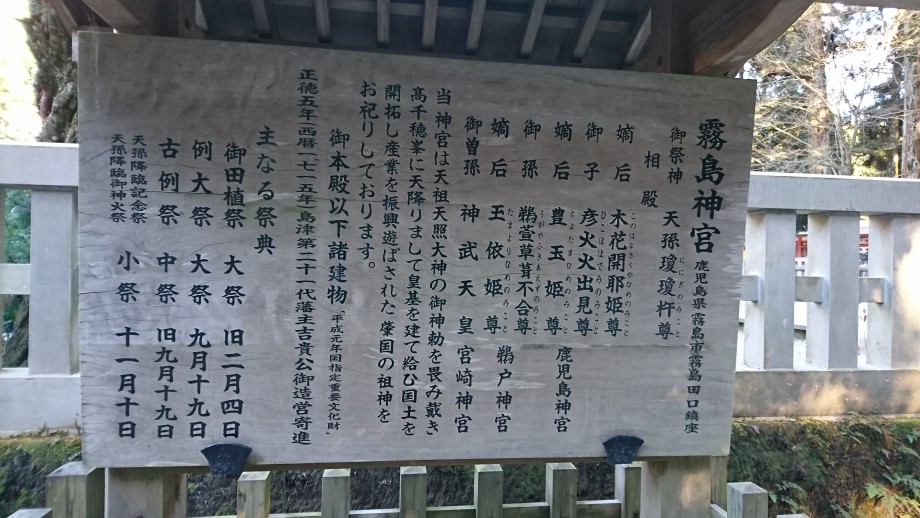 霧島神宮 鹿児島県霧島市霧島田口鎮座
御祭神 天孫瓊瓊杵尊
ににぎのみこと
相殿
嫡后 木花開耶姫尊
このはなさくやひめのみこと
御子 彦火火出見尊
ひこほほでみのみこと
嫡后 豊玉姫尊 鹿児島神宮
とよたまひめのみこと
御孫 鵜萱草葺不合尊 鵜戸神宮
うがやふきあえずのみこと
嫡后 玉依姫尊
たまよりひめのみこと
御曽孫 神武天皇 宮崎神宮
当神宮は天祖天照大神の御神勅を畏み戴き
高千穂峯に天降りまして皇基を建て給ひ国土を
開拓し産業を振興遊ばされた肇国の祖神を
お祀りしております。
御本殿以下諸建物「平成元年国指定重要文化財」
正徳五年西暦一七一五年島津第二十一代藩主吉貴公御造営寄進
主なる祭典
御田植祭 大祭 旧二月四日
例大祭 大祭 九月十九日
古例祭 中祭 旧九月十九日
天孫降臨記念祭
天孫降臨御神火祭 小祭 十一月十日